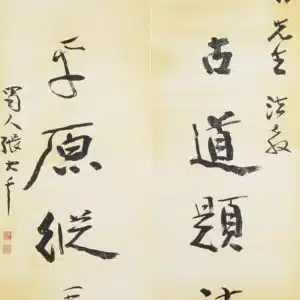 先生法教
古道題
平原縱
蜀人張大千